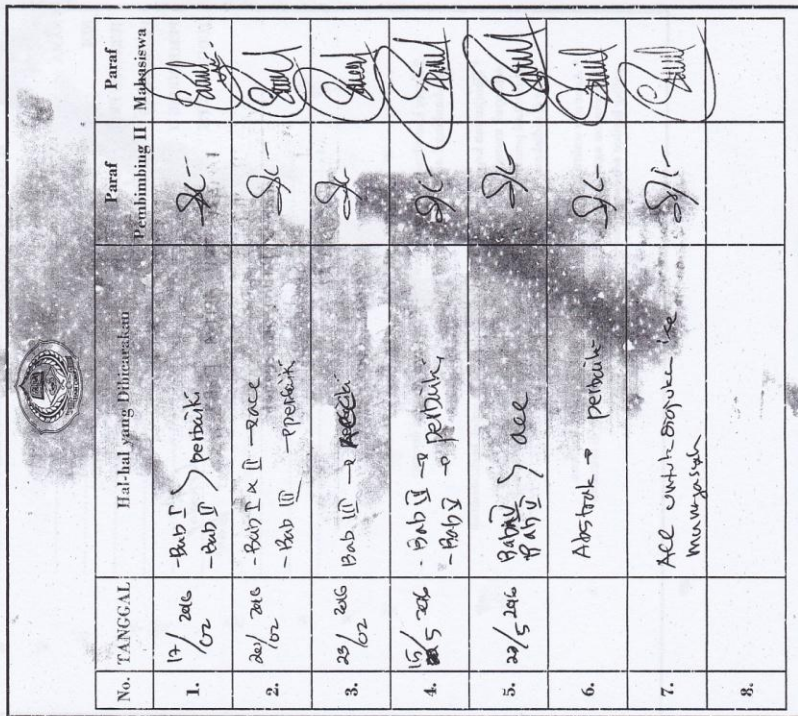 No. TANGGAL Hal-hal yang Dibicarakan Paraf Pembimbing II Paraf Mahasiswa
1. 17/02 2016 - Bab I
- Bab II } perbaiki
2. 2016 - Bab I & II → acc
- Bab III → perbaiki
3. 23/02 2016 Bab III → acc
4. 15/5 2016 - Bab IV → perbaiki
- Bab V → perbaiki
5. 22/5 2016 Bab IV
Bab V } acc
6. Abstrak → perbaiki
7. ACC untuk ke
munaqasyah
8.